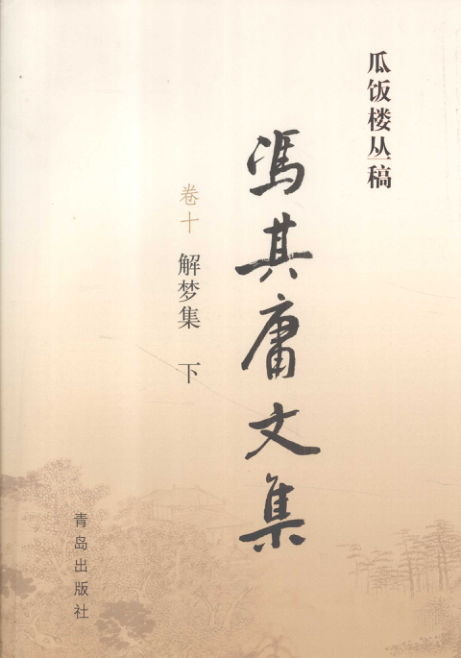 瓜饭楼丛稿
冯其庸文集
卷十 解梦集 下
青岛出版社